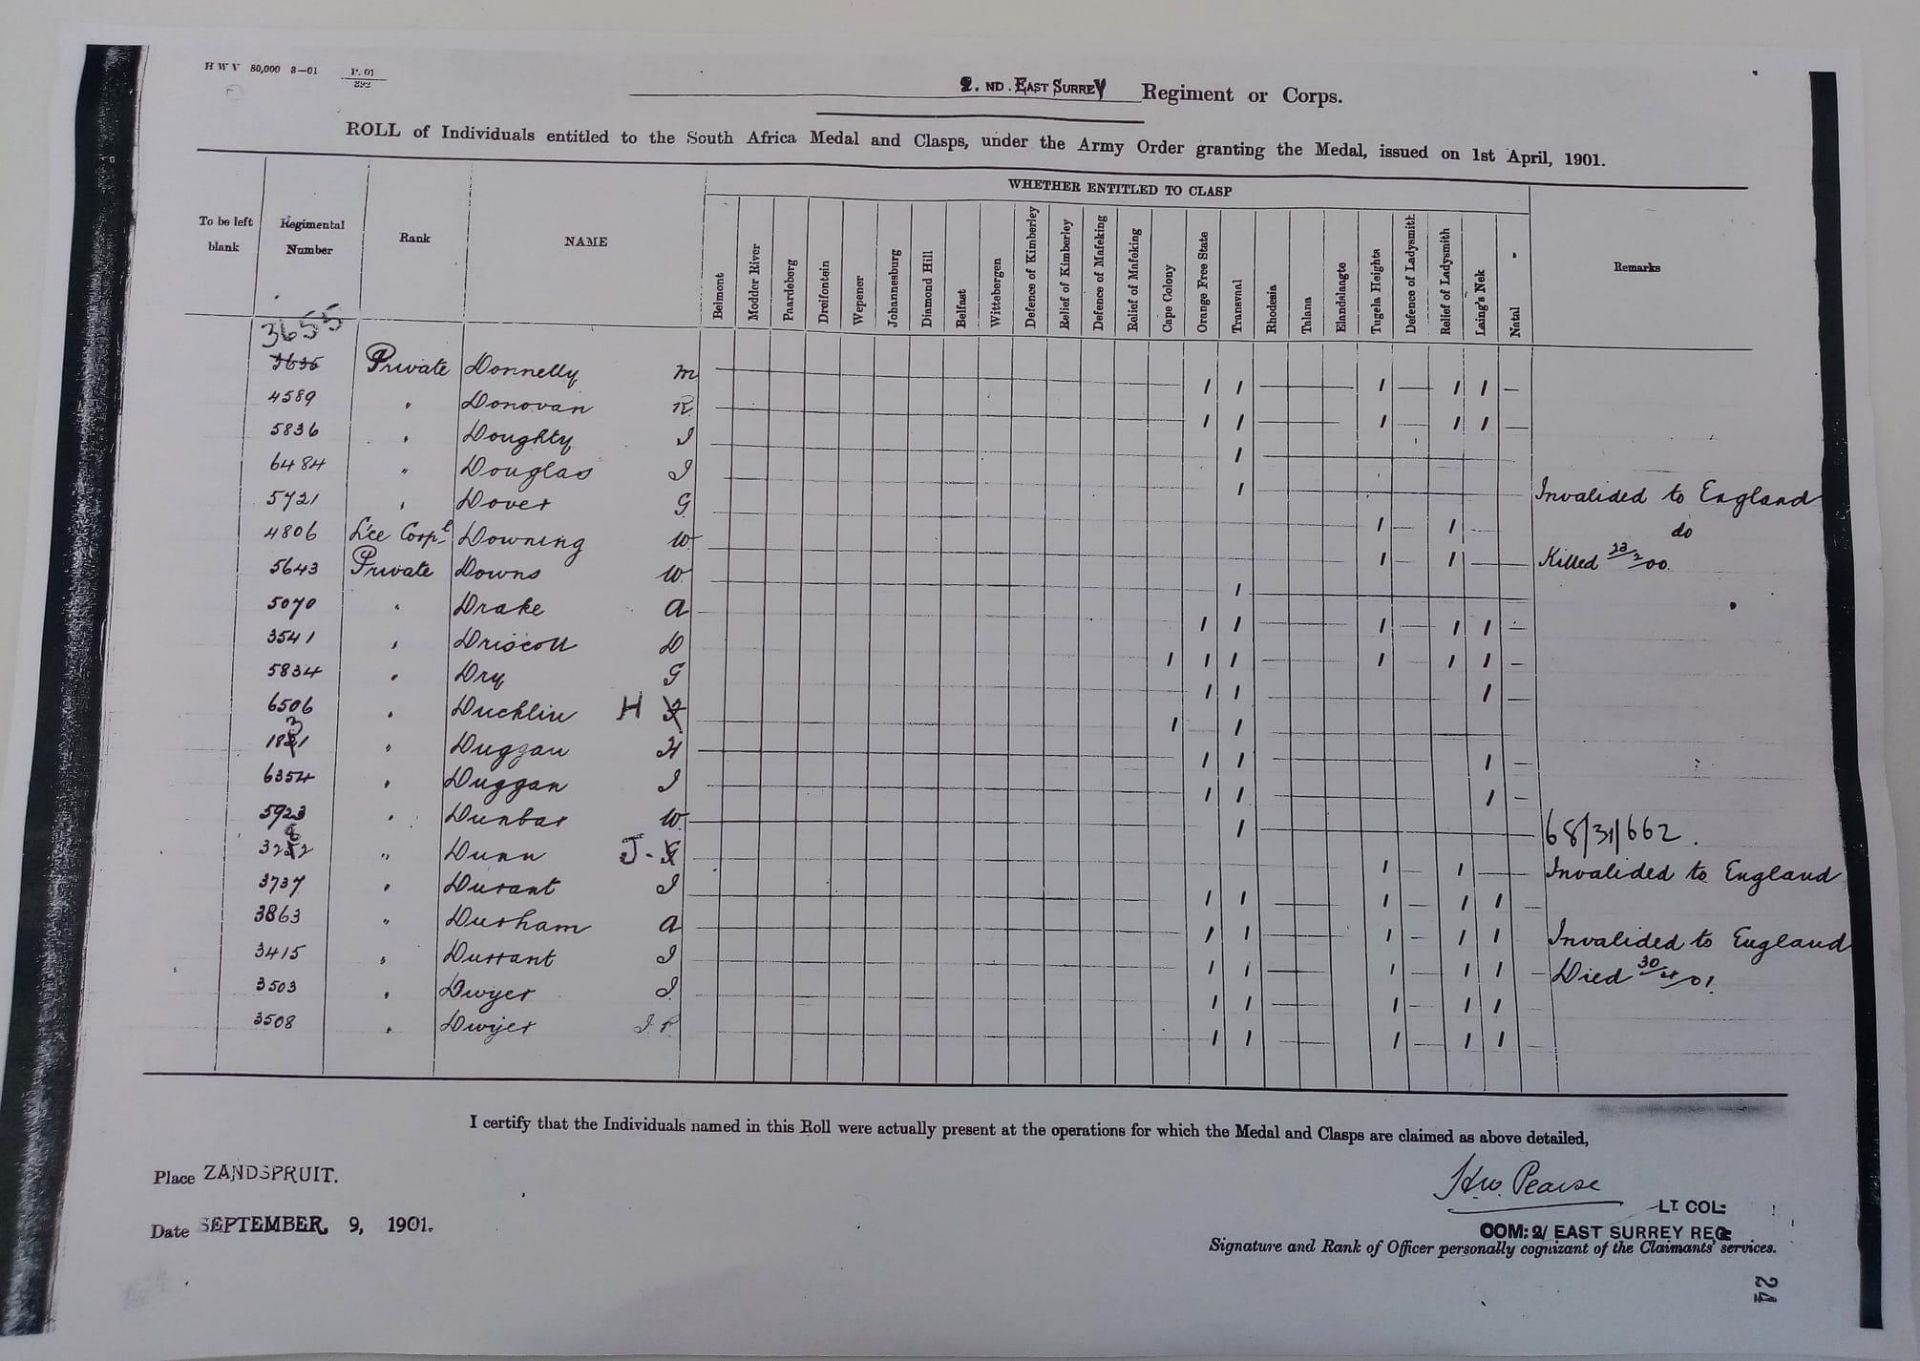 H W V 80,000 3—01 P. 01
2. ND. EAST SURREY Regiment or Corps.
ROLL of Individuals entitled to the South Africa Medal and Clasps, under the Army Order granting the Medal, issued on 1st April, 1901.
WHETHER ENTITLED TO CLASP
To be left blank Regimental Number Rank NAME Belmont Modder River Paardeberg Dreifontein Wepener Johannesburg Diamond Hill Belfast Wittebergen Defence of Kimberley Relief of Kimberley Defence of Mafeking Relief of Mafeking Cape Colony Orange Free State Transvaal Rhodesia Talana Elandslaagte Tugela Heights Defence of Ladysmith Relief of Ladysmith Laing's Nek Natal Remarks
3655
3635 Private Donnelly M 1 1 1 1 1
4589 " Donovan R 1 1 1 1 1
5836 " Doughty J 1
6484 " Douglas J 1
5721 " Dover G 1 1 Invalided to England
4806 L'ce Corpl Downing W 1 1 do
5643 Private Downs W 1 Killed 23/2/00.
5070 " Drake A 1 1 1 1 1
3541 " Driscoll D 1 1 1 1 1 1
5834 " Dry G 1 1 1
6506 " Duchlin H 1 1
3
1821 " Duggan H 1 1 1
6354 " Duggan J 1 1 1
5923 " Dunbar W 1 68/31/662.
Dunn J. 1 1 Invalided to England
3737 " Durant J 1 1 1 1 1
3863 " Durham A 1 1 1 1 1 Invalided to England
3415 " Durrant J 1 1 1 1 1 Died 30/4/01.
3503 " Dwyer J. 1 1 1 1 1
3508 " Dwyer J. P 1 1 1 1 1
I certify that the Individuals named in this Roll were actually present at the operations for which the Medal and Clasps are claimed as above detailed,
Place ZANDSPRUIT.
H.W. Pearse
LT. COL:
Date SEPTEMBER, 9, 1901.
COM: 2/ EAST SURREY REG
Signature and Rank of Officer personally cognizant of the Claimants' services.
24